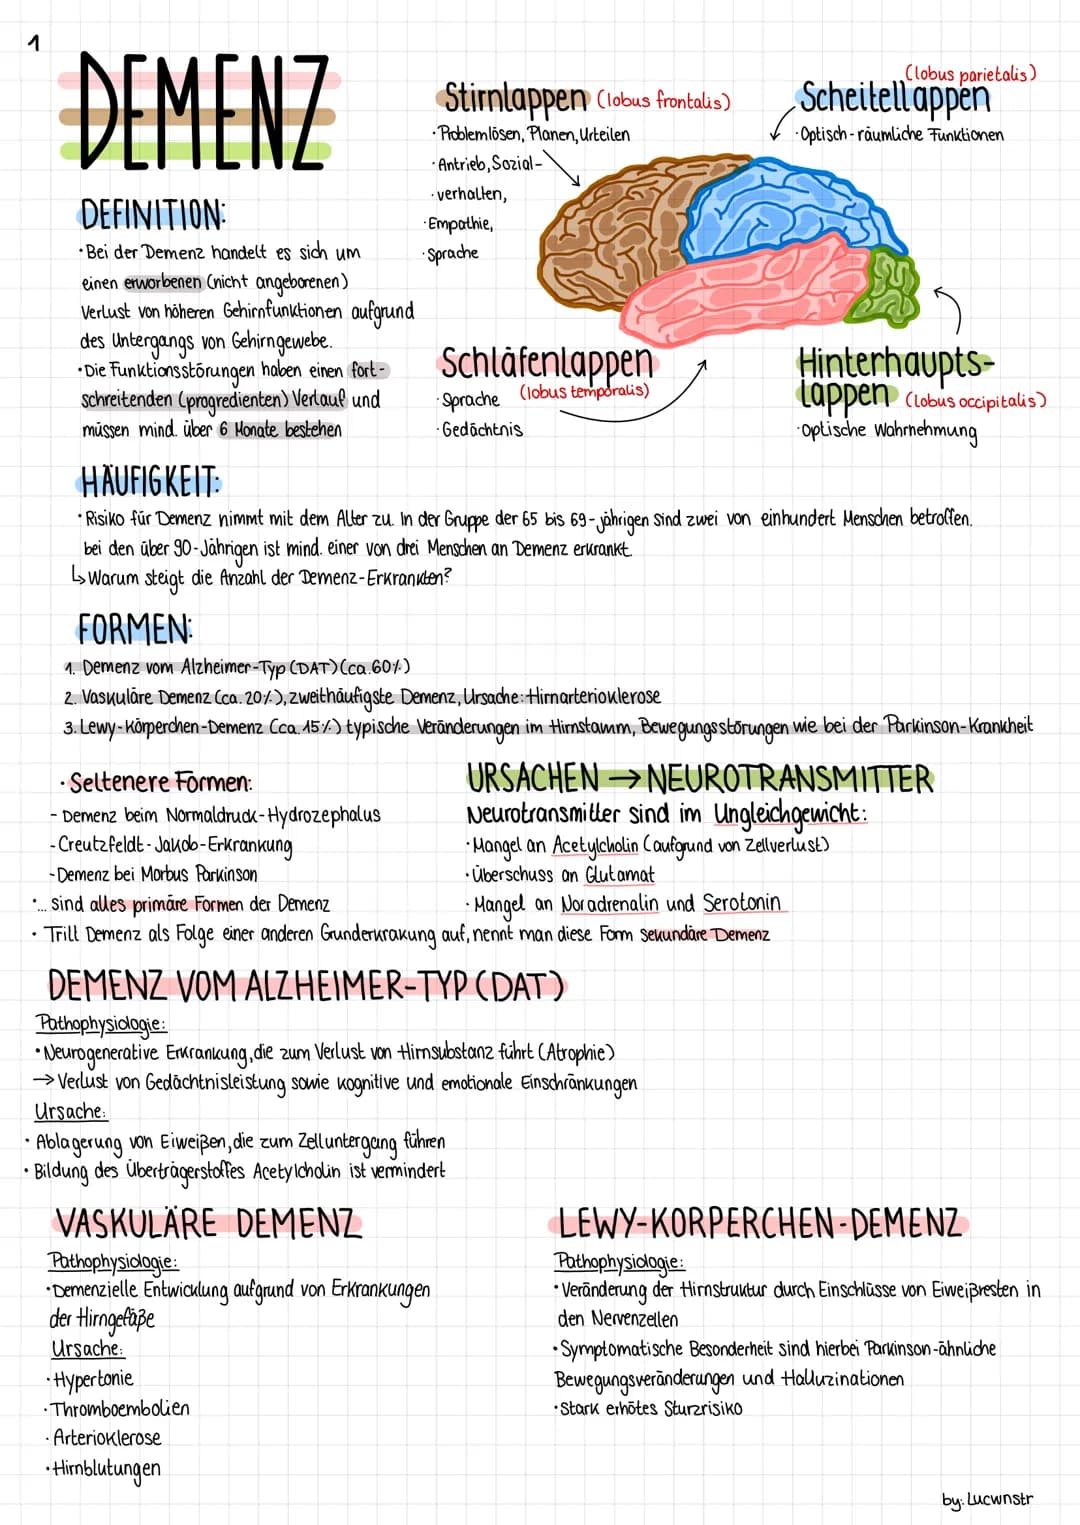 1
DEMENZ
DEFINITION:
·Bei der Demenz handelt es sich um
einen erworbenen (nicht angeborenen)
Verlust von höheren Gehirnfunktionen aufgrund
des Untergangs von Gehirngewebe.
·Die Funktionsstörungen haben einen fort-
schreitenden (progredienten) Verlauf und
müssen mind. über 6 Monate bestehen
Stirnlappen (lobus frontalis)
·Problemlösen, Planen, Urteilen
·Antrieb, Sozial-
·verhalten,
·Empathie,
·Sprache
(lobus parietalis)
Scheitellappen
·Optisch-räumliche Funktionen
Schläfenlappen
(lobus temporalis)
·Sprache
·Gedächtnis
Hinterhaupts-
lappen (lobus occipitalis)
·optische Wahrnehmung
HÄUFIGKEIT:
·Risiko für Demenz nimmt mit dem Alter zu. In der Gruppe der 65 bis 69-jährigen sind zwei von einhundert Menschen betroffen.
bei den über 90-Jährigen ist mind. einer von drei Menschen an Demenz erkrankt.
↳Warum steigt die Anzahl der Demenz-Erkrankten?
FORMEN:
1. Demenz vom Alzheimer-Typ (DAT) (ca.60%)
2. Vaskuläre Demenz (ca. 20%), zweithäufigste Demenz, Ursache: Hirnarterioklerose
3. Lewy-Körperchen-Demenz (ca. 15%) typische Veränderungen im Hirnstamm, Bewegungsstörungen wie bei der Parkinson-Krankheit
·Seltenere Formen:
- Demenz beim Normaldruck-Hydrozephalus
-Creutzfeldt-Jakob-Erkrankung
-Demenz bei Morbus Parkinson
·... sind alles primäre Formen der Demenz
URSACHEN → NEUROTRANSMITTER
Neurotransmitter sind im Ungleichgewicht:
·Mangel an Acetylcholin (aufgrund von Zellverlust)
·Überschuss an Glutamat
·Mangel an Noradrenalin und Serotonin
· Trill Demenz als Folge einer anderen Grunderkrakung auf, nennt man diese Form sekundäre Demenz
DEMENZ VOM ALZHEIMER-TYP (DAT)
Pathophysiologie:
·Neurogenerative Erkrankung, die zum Verlust von Hirnsubstanz führt (Atrophie)
→ Verlust von Gedächtnisleistung sowie kognitive und emotionale Einschränkungen
Ursache:
· Ablagerung von Eiweißen, die zum Zelluntergang führen
· Bildung des Überträgerstoffes Acetylcholin ist vermindert
VASKULÄRE DEMENZ
Pathophysiologie:
·Demenzielle Entwicklung aufgrund von Erkrankungen
der Hirngefäße
Ursache:
·Hypertonie
·Thromboembolien
·Arterioklerose
·Hirnblutungen
LEWY-KÖRPERCHEN-DEMENZ
Pathophysiologie:
·Veränderung der Hirnstruktur durch Einschlüsse von Eiweißresten in
den Nervenzellen
·Symptomatische Besonderheit sind hierbei Parkinson-ähnliche
Bewegungsveränderungen und Halluzinationen
·Stark erhötes Sturzrisiko
by: Lucwnstr